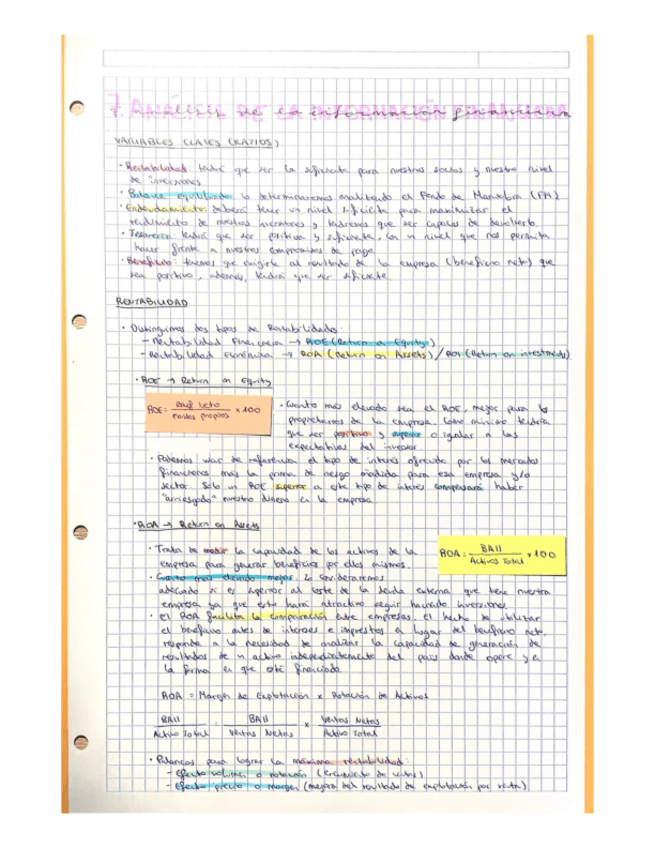 7. ANÁLISIS DE LA INFORMACIÓN financiera
VARIABLES CLAVES (RATIOS)
· Rentabilidad: tendrá que ser la suficiente para nuestros socios y nuestro nivel
de inversiones
· Balance equilibrado: lo determinaremos analizando el Fondo de Maniobra (FM)
· Endeudamiento: deberá tener un nivel suficiente para maximizar el
rendimiento de nuestros inversores y tendremos que ser capaces de devolverlo.
· Tesorería: tendrá que ser positiva y suficiente, con un nivel que nos permita
hacer frente a nuestros compromisos de pago
· Beneficio: tenemos que exigirle al resultado de la empresa (beneficio neto) que
sea positivo, además, tendrá que ser suficiente
RENTABILIDAD
· Distinguimos dos tipos de Rentabilidades:
- Rentabilidad Financiera → ROE (Return on Equity)
- Rentabilidad Económica → ROA (Return on Assets) / ROI (Return on investments)
· ROE → Return on Equity
ROE = Bnº Neto / Fondos propios × 100
· Cuanto más elevado sea el ROE, mejor para los
propietarios de la empresa. Como mínimo tendría
que ser positivo y superior o igualar a las
expectativas del inversor
· Podemos usar de referencia el tipo de interés ofrecido por los mercados
financieros más la prima de riesgo añadida para esa empresa y/o
sector. Sólo un ROE superior a este tipo de interés compensará haber
"arriesgado" nuestro dinero en la empresa
· ROA → Return on Assets
· Trata de medir la capacidad de los activos de la
empresa para generar beneficios por ellos mismos.
ROA = BAII / Activo Total × 100
· Cuanto más elevado mejor. Lo consideraremos
adecuado si es superior al coste de la deuda externa que tiene nuestra
empresa ya que esto hará atractivo seguir haciendo inversiones.
· El ROA facilita la comparación entre empresas. El hecho de utilizar
el beneficio antes de intereses e impuestos en lugar del beneficio neto,
responde a la necesidad de analizar la capacidad de generación de
resultados de un activo independientemente del país donde opere y en
la forma en que esté financiado
ROA = Margen de Explotación × Rotación de Activos
BAII / Activo Total = BAII / Ventas Netas × Ventas Netas / Activo Total
· Palancas para lograr la máxima rentabilidad:
- Efecto volumen o rotación (crecimiento de ventas)
- Efecto precio o margen (mejora del resultado de explotación por venta)